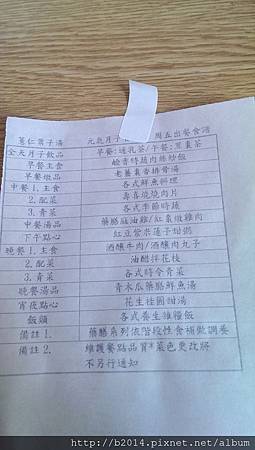 薏仁蓮子湯 元氣月子 周五出餐食譜
全天月子飲品 早餐:通乳茶/午餐:黑棗茶
早餐主食 鹹香蒜蔬肉絲炒飯
早餐燉品 老薑素香排骨湯
中餐1.主食 各式鮮魚料理
2.配菜 壽喜燒燒肉片
3.青菜 各式季節時蔬
中餐湯品 藥膳麻油雞/紅棗燉雞肉
下午點心 紅豆紫米蓮子甜粥
晚餐1.主食 酒釀牛肉/酒釀肉丸子
2.配菜 油醋拌花枝
3.青菜 各式時令青菜
晚餐湯品 青木瓜藥膳鮮魚湯
宵夜點心 花生桂圓甜湯
飯類 各式養生雜糧飯
備註1. 藥膳系列依階段性食補做調養
備註2. 維護餐點品質*菜色更改將
不另行通知
http://b2014.pixnet.net/album